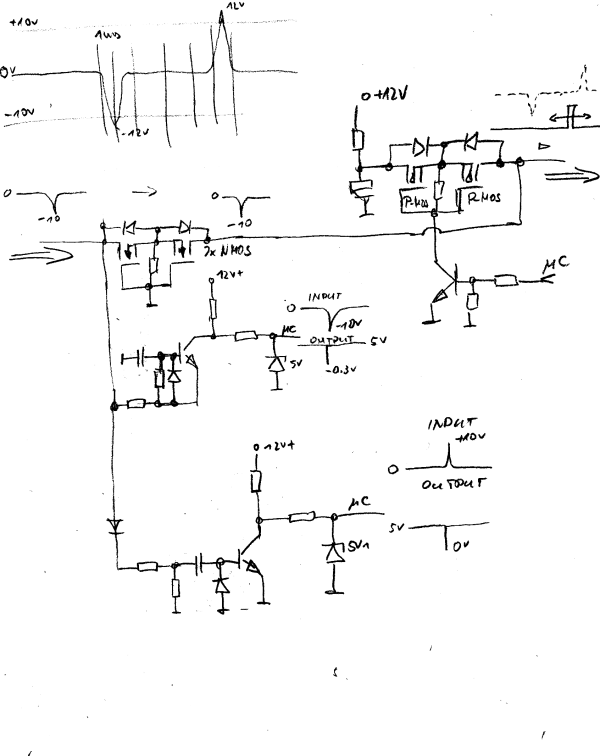 +10V
12V
1ms
0V
-10V
-12V
0 +12V
0
-10
0
-10
P-MOS
P-MOS
2x NMOS
12V+
μC
INPUT
0
-10V
μC
OUTPUT
5V
5V
-0.3V
INPUT
+10V
0
OUTPUT
0 12V+
μC
5V
0V
5V1